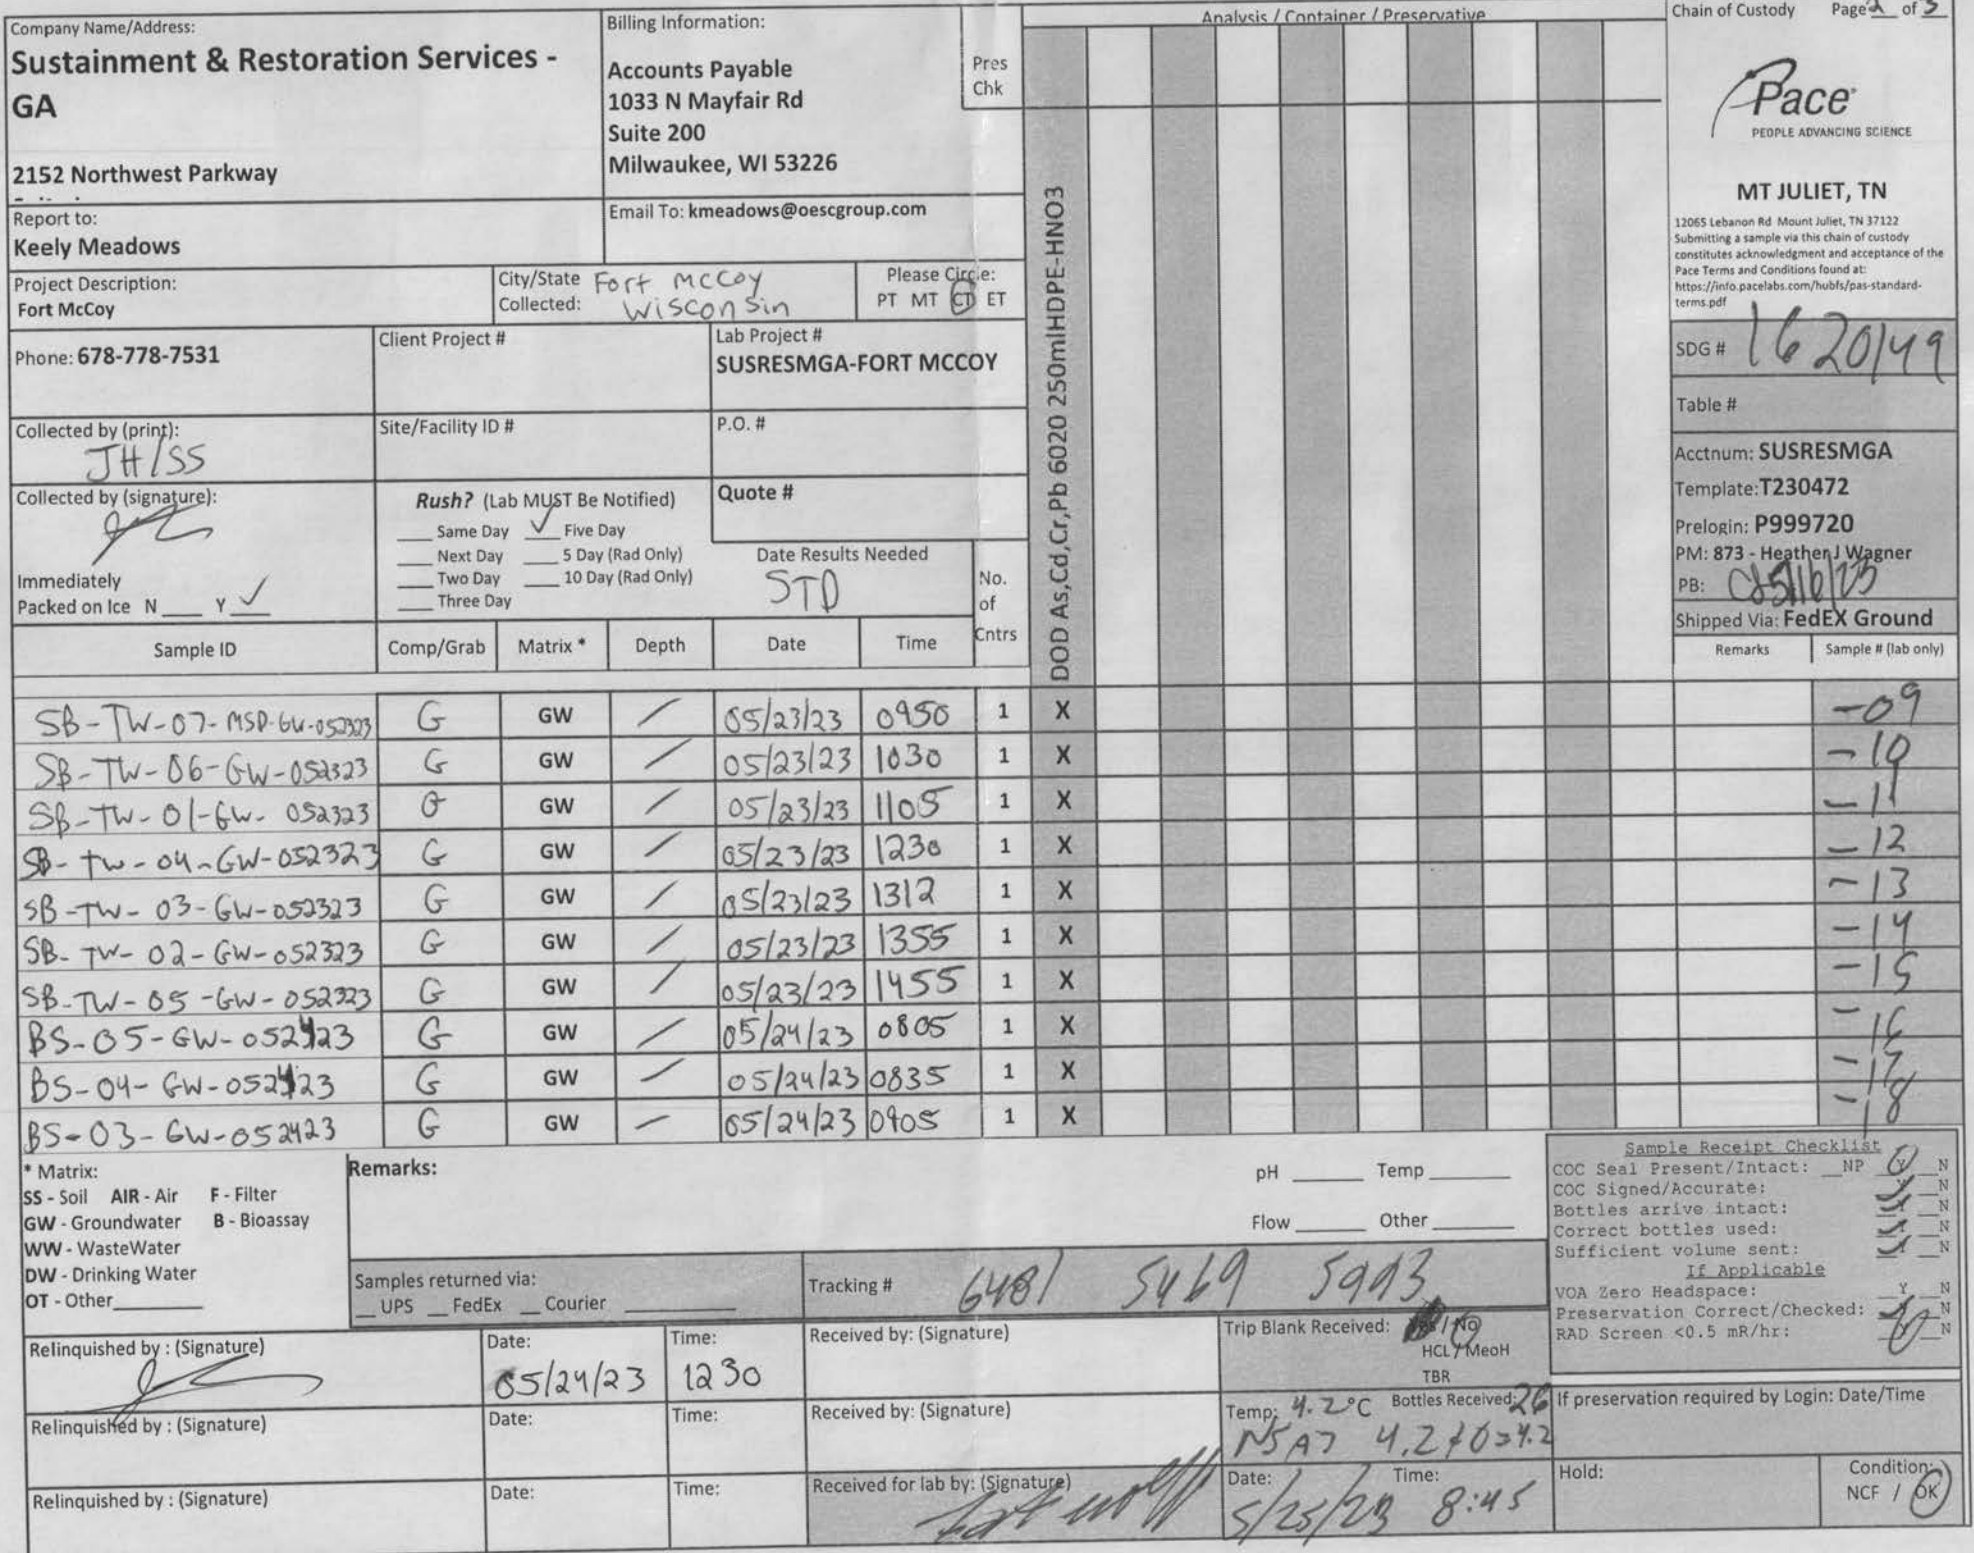 Company Name/Address:
Sustainment & Restoration Services -
GA
2152 Northwest Parkway
Billing Information:
Accounts Payable
1033 N Mayfair Rd
Suite 200
Milwaukee, WI 53226
Pres
Chk
Analysis / Container / Preservative
Chain of Custody Page 2 of 3
Pace
PEOPLE ADVANCING SCIENCE
MT JULIET, TN
12065 Lebanon Rd Mount Juliet, TN 37122
Submitting a sample via this chain of custody
constitutes acknowledgment and acceptance of the
Pace Terms and Conditions found at:
https://info.pacelabs.com/hubfs/pas-standard-
terms.pdf
Report to:
Keely Meadows
Email To: kmeadows@oescgroup.com
Project Description:
Fort McCoy
City/State
Collected:
Fort McCoy
Wisconsin
Please Circle:
PT MT CT ET
Phone: 678-778-7531
Client Project #
Lab Project #
SUSRESMGA-FORT MCCOY
Collected by (print):
JH/SS
Site/Facility ID #
P.O. #
Collected by (signature):
Rush? (Lab MUST Be Notified)
___ Same Day ✓ Five Day
___ Next Day ___ 5 Day (Rad Only)
___ Two Day ___ 10 Day (Rad Only)
___ Three Day
Quote #
Date Results Needed
STD
Immediately
Packed on Ice N ___ Y ✓
No.
of
Cntrs
DOD As,Cd,Cr,Pb 6020 250mlHDPE-HNO3
SDG # 1620149
Table #
Acctnum: SUSRESMGA
Template:T230472
Prelogin: P999720
PM: 873 - Heather J Wagner
PB: 5/16/23
Shipped Via: FedEX Ground
Sample ID Comp/Grab Matrix * Depth Date Time Remarks Sample # (lab only)
SB-TW-07-MSD-GW-052323 G GW / 05/23/23 0950 1 X -09
SB-TW-06-GW-052323 G GW / 05/23/23 1030 1 X -10
SB-TW-01-GW-052323 G GW / 05/23/23 1105 1 X -11
SB-TW-04-GW-052323 G GW / 05/23/23 1230 1 X -12
SB-TW-03-GW-052323 G GW / 05/23/23 1312 1 X -13
SB-TW-02-GW-052323 G GW / 05/23/23 1355 1 X -14
SB-TW-05-GW-052323 G GW / 05/23/23 1455 1 X -15
BS-05-GW-052423 G GW / 05/24/23 0805 1 X -16
BS-04-GW-052423 G GW / 05/24/23 0835 1 X -17
BS-03-GW-052423 G GW / 05/24/23 0905 1 X -18
* Matrix:
SS - Soil AIR - Air F - Filter
GW - Groundwater B - Bioassay
WW - WasteWater
DW - Drinking Water
OT - Other
Remarks:
pH ___ Temp ___
Flow ___ Other ___
Sample Receipt Checklist
COC Seal Present/Intact: __NP Y __N
COC Signed/Accurate: Y __N
Bottles arrive intact: Y __N
Correct bottles used: Y __N
Sufficient volume sent: Y __N
If Applicable
VOA Zero Headspace: __Y __N
Preservation Correct/Checked: Y __N
RAD Screen <0.5 mR/hr: Y __N
Samples returned via:
__ UPS __ FedEx __ Courier
Tracking # 6481 5469 5993
Relinquished by : (Signature)
Date:
05/24/23
Time:
1230
Received by: (Signature)
Trip Blank Received: Yes / No
HCL / MeoH
TBR
Relinquished by : (Signature)
Date:
Time:
Received by: (Signature)
Temp: 4.2°C Bottles Received: 26
NSA7 4.2+0=4.2
If preservation required by Login: Date/Time
Relinquished by : (Signature)
Date:
Time:
Received for lab by: (Signature)
Date:
5/25/23
Time:
8:45
Hold:
Condition:
NCF / OK